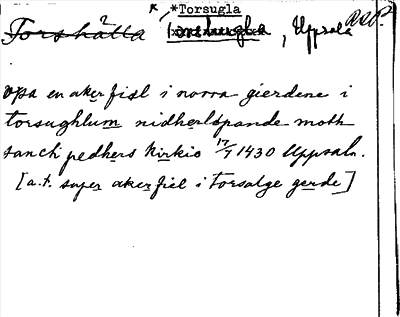 *Torsugla
Torshälla , Uppsala
vpa en aker fiäl i norra gierdene i
torsughlum nidherlöpande moth
sancti pedhers kirkio 17/7 1430 Uppsala.
[a.t. super aker fiel i torsalge gerde]